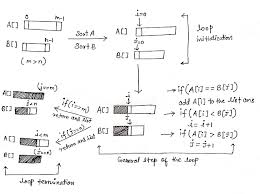 0 m-1
A[]
0 n-1
B[]
(m > n)
Sort A
Sort B
i=0
A[]
B[]
j=0
loop
initialization
(i==m)
A[]
B[]
j<n
if(i==m)
return ans list
if(j==n)
return ans list
i<m
A[]
B[]
(j==n)
loop termination
i
A[]
B[]
j
General step of the loop
if(A[i] == B[j])
add A[i] to the list ans
if(A[i] < B[j])
i = i+1
if(A[i] > B[j])
j = j+1